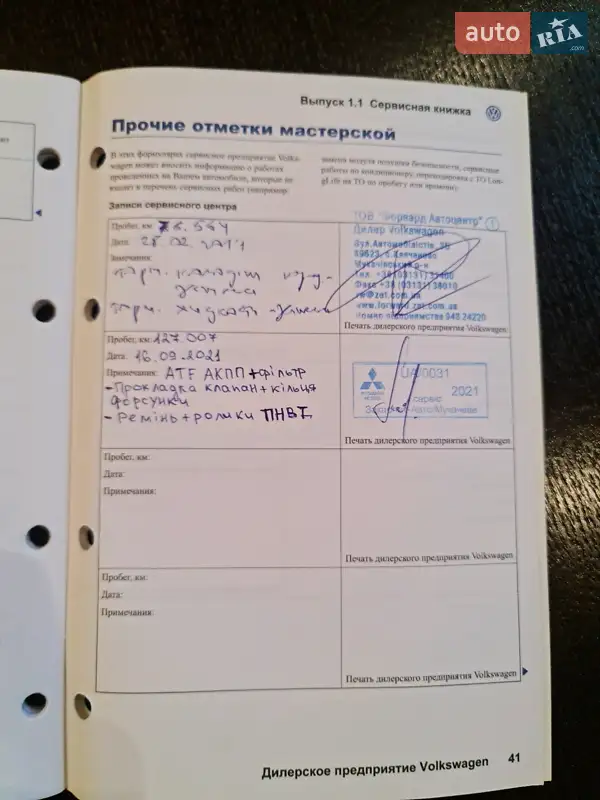 auto RIA .com
Выпуск 1.1 Сервисная книжка
Прочие отметки мастерской
В этих формулярах сервисное предприятие Volks-
wagen может вносить информацию о работах
проведенных на Вашем автомобиле, которые не
входят в перечень сервисных работ (например
замена модуля подушки безопасности, сервисные
работы по кондиционеру, перекодировка с ТО Lon-
gLife на ТО по пробегу или времени).
Записи сервисного центра
Пробег, км
Дата:
Примечания:
ТОВ "Форвард Автоцентр"
Дилер Volkswagen
Вул. Автомобілістів,
89623, с. Ключаново
Мукачівський р-н
www.forward.zet.com.ua
Печать дилерского предприятия Volkswagen
Пробег, км: 127.007
Дата: 16.09.2021
Примечания: ATF АКПП+фільтр
-Прокладка клапан+кільця
форсунки
-Ремінь+ролики ПНВТ
UA/0031
2021
сервис
Печать дилерского предприятия Volkswagen
Пробег, км:
Дата:
Примечания:
Печать дилерского предприятия Volkswagen
Пробег, км:
Дата:
Примечания:
Печать дилерского предприятия Volkswagen
Дилерское предприятие Volkswagen 41